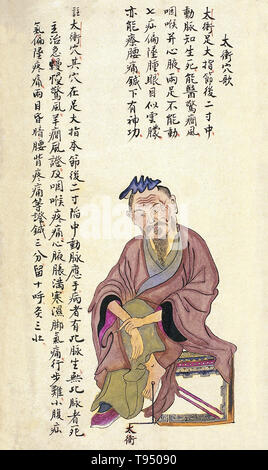 太衝穴歌
太衝足大指節後二寸中
動脈知生死能醫驚癇風
咽喉并心脹兩足不能動
七疝偏墜腫眼目似雲朦
亦能療腰痛鍼下有神功
註太衝穴其穴在足大指本節後二寸陷中動脈應手病者有此脈生無此脈者死
主治急慢驚風羊癇風證及咽喉疼痛心腹脹滿寒濕腳氣痛行步難小腹疝
氣偏墜疼痛兩目昏暗腰背疼痛等證鍼三分留十呼灸三壯
太衝
alamy stock photo